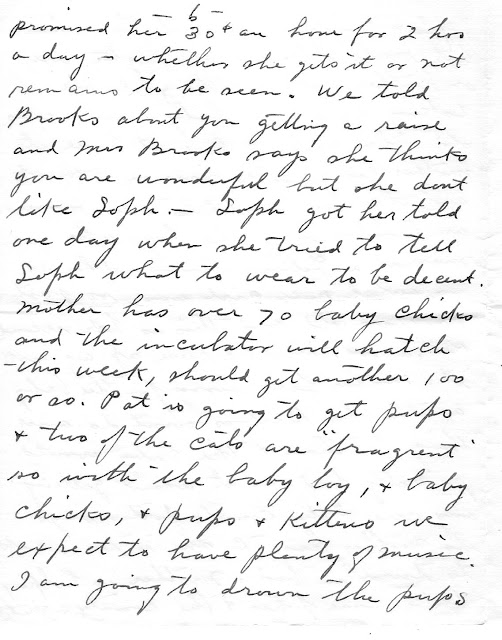 6–
promised her 30¢ an hour for 2 hrs
a day – whether she gets it or not
remains to be seen. We told
Brooks about you getting a raise
and Mrs Brooks says she thinks
you are wonderful but she dont
like Soph. – Soph got her told
one day when she tried to tell
Soph what to wear to be decent.
Mother has over 70 baby chicks
and the incubator will hatch
this week, should get another 100
or so. Pat is going to get pups
& two of the cats are "fragrent"
so with the baby boy, & baby
chicks, & pups & Kittens we
expect to have plenty of music.
I am going to drown the pups